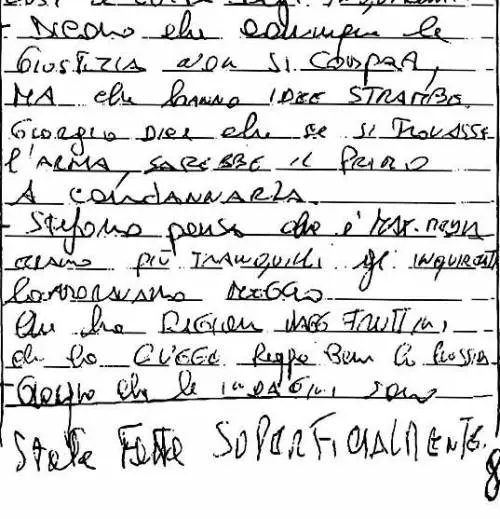 - Dicono che comunque la
Giustizia non si compra,
MA che hanno IDEE STRAMBE.
Giorgio DICE che se si trovasse
l'ARMA, SAREBBE il PRIMO
A CONDANNARLA.
- Stefano pensa che i
erano PIÙ TRANQUILLI gli INQUIRENTI
LAVORAVANO MEGLIO
che ha
che ha Bene la
- Giorgio che le INDAGINI sono
State Fatte SUPERFICIALMENTE.
8